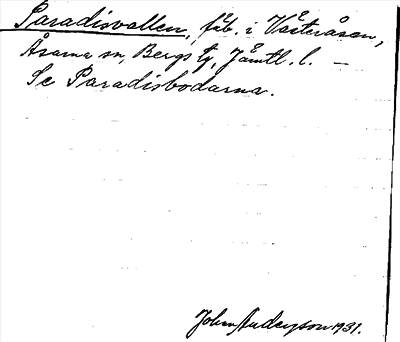 Paradisvallen, fäb. i Västeråsen,
Åsarna sn, Bergs tg, Jämtl. l. –
Se Paradisbodarna.
John Anderson 1931.